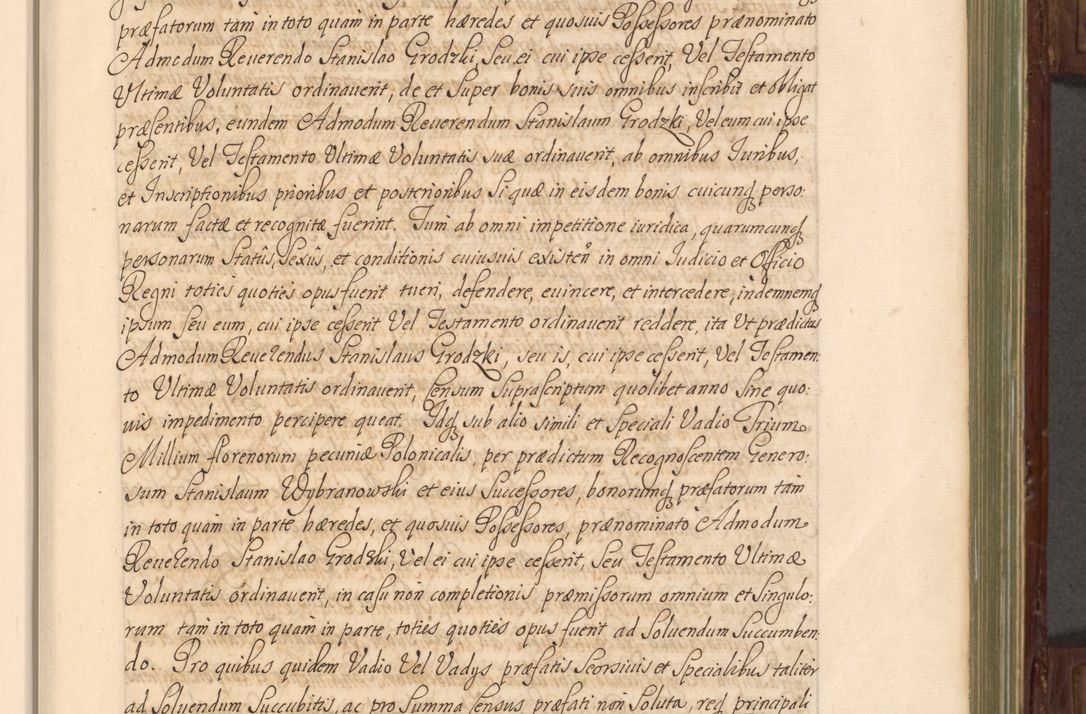 præfatorum tam in toto quam in parte hæredes et quosuis Possessores prænominato
Admodum Reuerendo Stanislao Grodzki, seu ei cui ipse cesserit, Vel Testamento
Vltimæ Voluntatis ordinauerit, de et super bonis suis omnibus inscribit et obligat
præsentibus, eundem Admodum Reuerendum Stanislaum Grodzki, Vel eum cui ipse
cesserit, Vel Testamento Vltimæ Voluntatis suæ ordinauerit, ab omnibus Iuribus,
et Inscriptionibus prioribus et posterioribus si quæ in eisdem bonis cuicunq perso:
narum factæ et recognitæ fuerint. Tum ab omni impetitione iuridica, quarumcunq
personarum Statûs, sexûs, et conditionis cuiusuis existen in omni Iudicio et Officio
Regni toties quoties opus fuerit tueri, defendere, euincere, et intercedere, indemnemq
ipsum seu eum, cui ipse cesserit Vel Testamento ordinauerit reddere, ita Vt prædictus
Admodum Reuerendus Stanislaus Grodzki, seu is, cui ipse cesserit, Vel Testamen:
to Vltimæ Voluntatis ordinauerit, Censum Suprascriptum quolibet anno sine quo:
uis impedimento percipere queat. Idq sub alio simili et speciali Vadio Trium
Millium florenorum pecuniæ Polonicalis, per prædictum Recognoscentem Genero:
sum Stanislaum Wybranowski et eius Successores, bonorumq præfatorum tam
in toto quam in parte hæredes, et quosuis Possessores, prænominato Admodum
Reuerendo Stanislao Grodzki, Vel ei cui ipse cesserit, seu Testamento Vltimæ
Voluntatis ordinauerit, in casu non completionis præmissorum omnium et singulo:
rum tam in toto quam in parte, toties quoties opus fuerit ad soluendum succumben:
do. Pro quibus quidem Vadio Vel Vadys præfatis seorsiuis et specialibus taliter
ad soluendum succubitis, ac pro summa census præfati non soluta, req principali